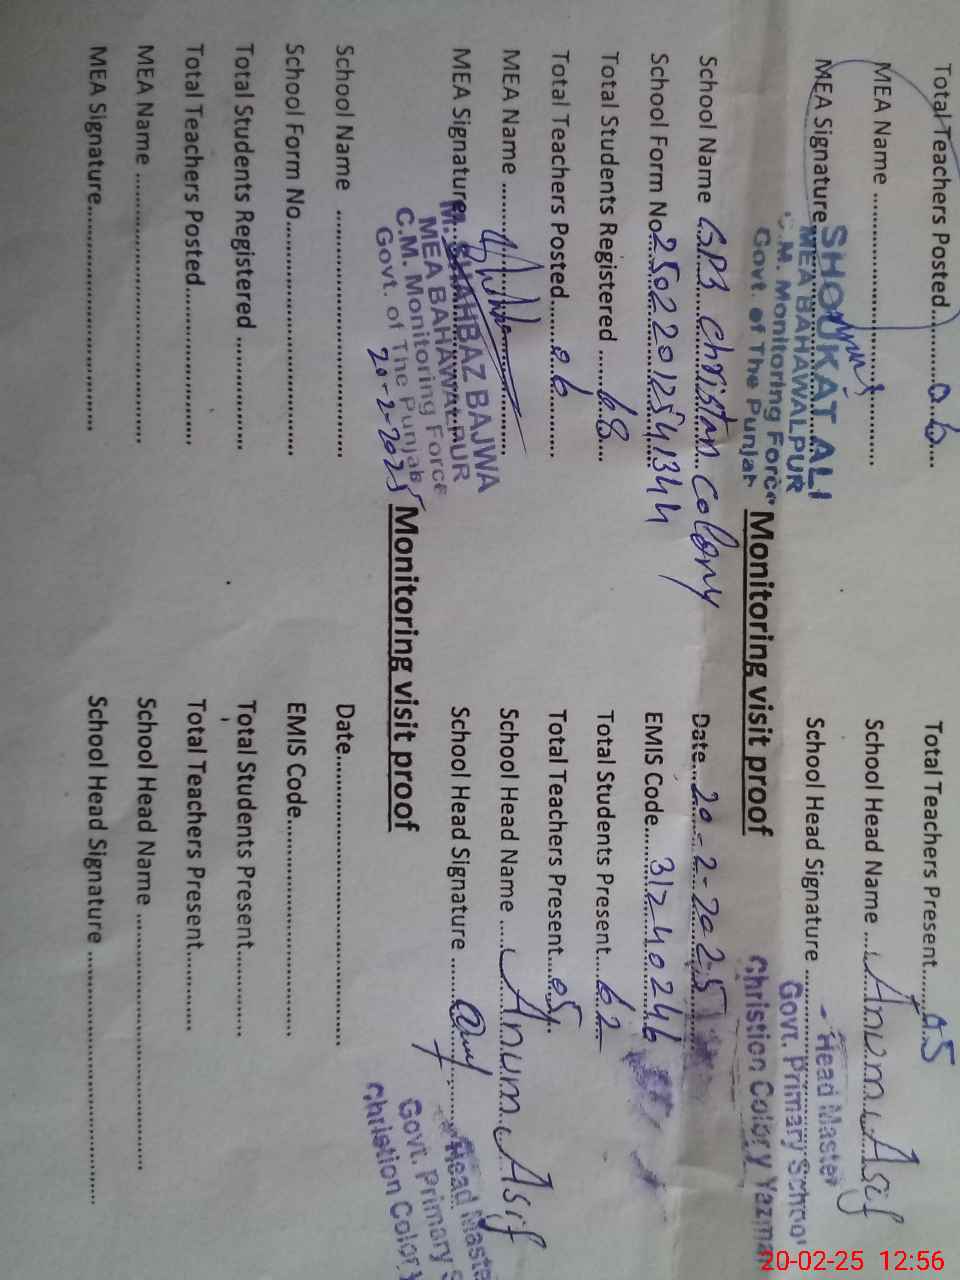 Total Teachers Posted..........06... Total Teachers Present......05
MEA Name .......................................... School Head Name ....Anum Asif
MEA Signature School Head Signature ..........
SHOUKAT ALI
MEA BAHAWALPUR
C.M. Monitoring Force
Govt. of The Punjab
Head Master
Govt. Primary School
Christion Colory Yazman
Monitoring visit proof
School Name GPS Christan Colony Date...20-2-2025
School Form No.25022012541344 EMIS Code........31240246
Total Students Registered .....68.... Total Students Present....62
Total Teachers Posted........06.......... Total Teachers Present...05
MEA Name ............................................. School Head Name ....Anum Asif
MEA Signature School Head Signature ..........
M. SHAHBAZ BAJWA
MEA BAHAWALPUR
C.M. Monitoring Force
Govt. of The Punjab
20-2-2025
Head Maste
Govt. Primary S
Christion Colory
Monitoring visit proof
School Name ............................................. Date....................................................
School Form No.......................................... EMIS Code........................................
Total Students Registered ..................... Total Students Present..............
Total Teachers Posted............................ Total Teachers Present..............
MEA Name ................................................. School Head Name ..............................................
MEA Signature.......................................... School Head Signature .............................................
20-02-25 12:56